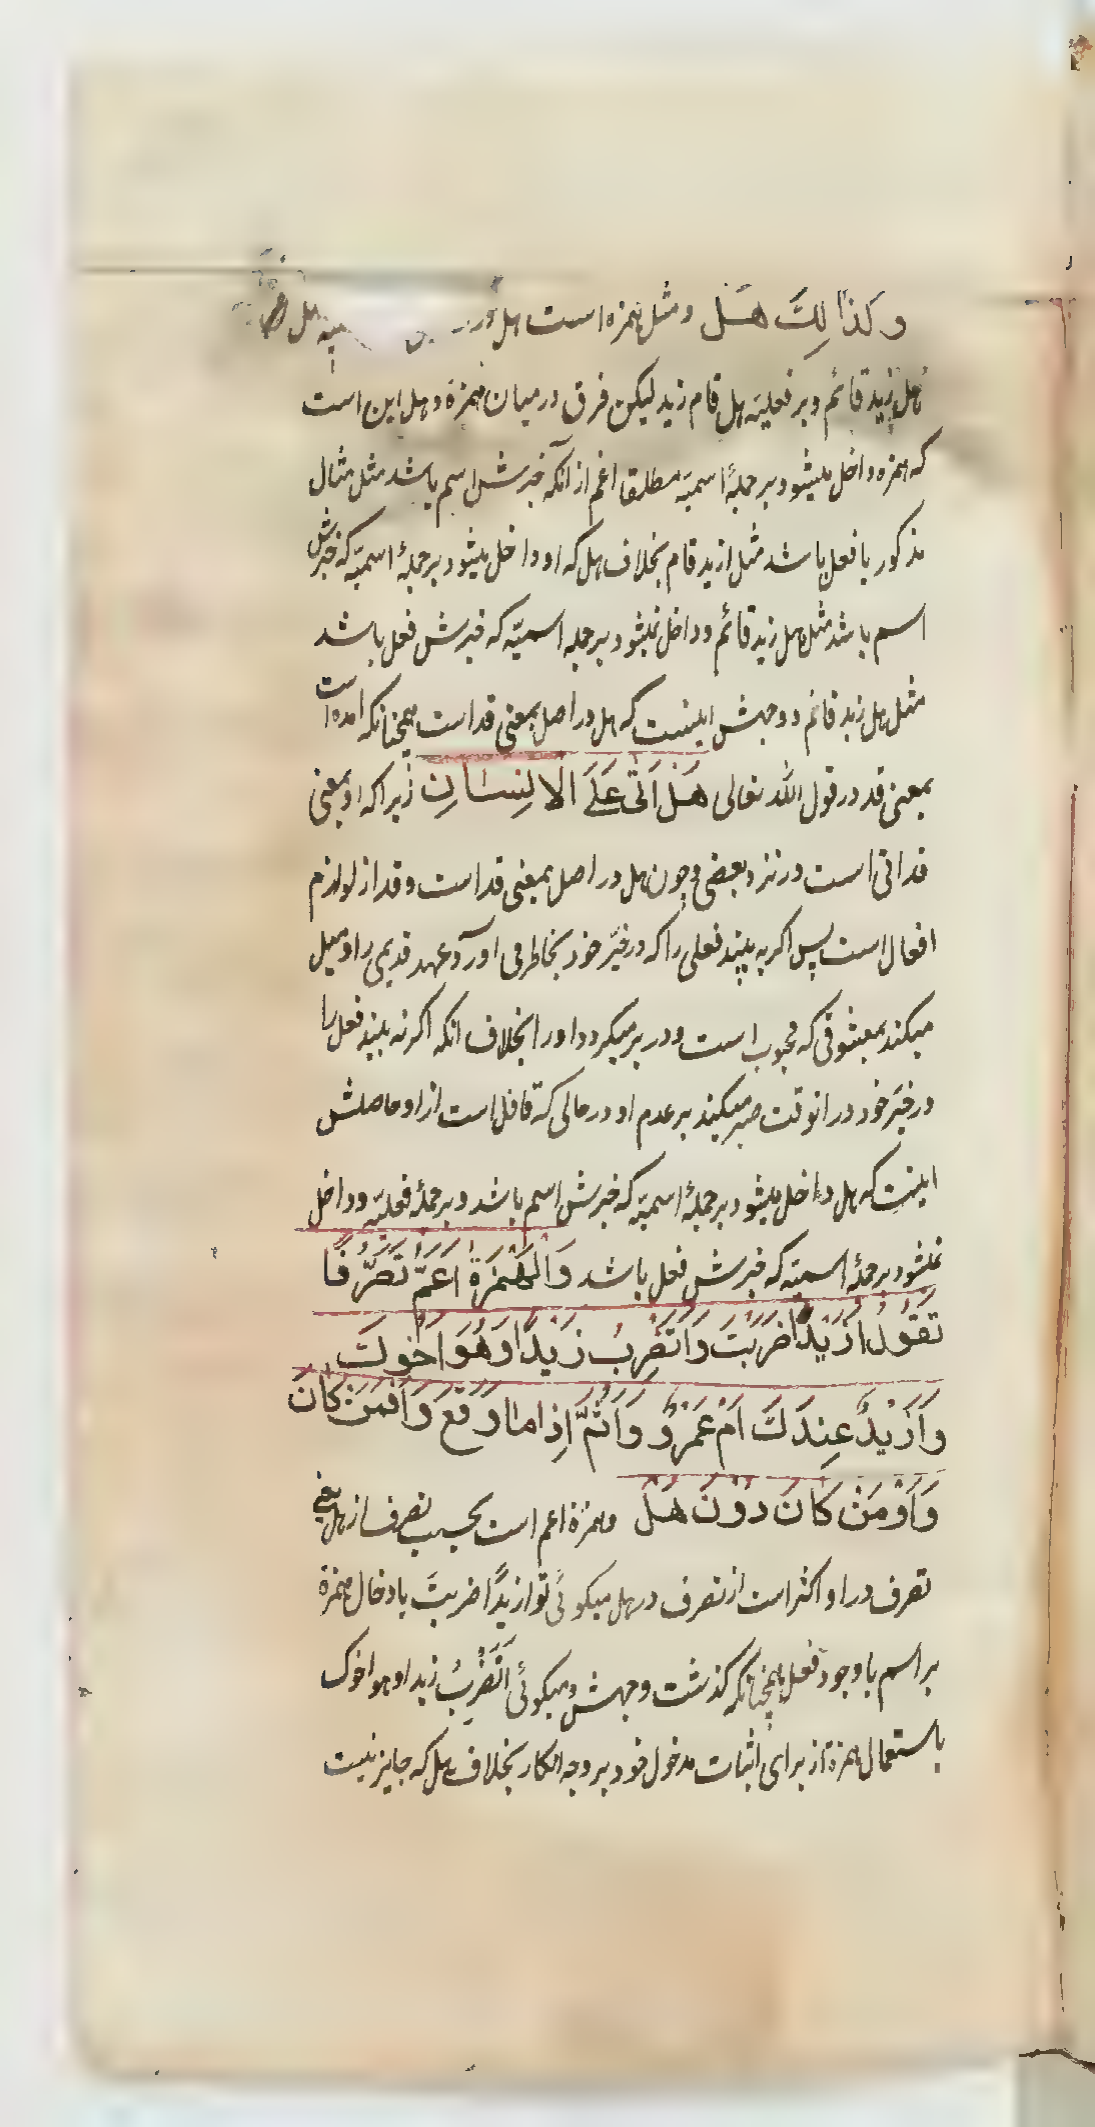 وَكَذَا لِكَ هَل ومثل همزه است هل در
هل زید قائم و بر فعلیه هل قام زید لیکن فرق در میان همزة و هل این است
که همزه داخل میشود بر جملهٔ اسمیه مطلقا اعم از آنکه خبرش اسم باشد مثل مثال
مذکور یا فعل باشد مثل ازید قام بخلاف هل که او داخل میشود بر جملهٔ اسمیّه که خبرش
اسم باشد مثل هل زید قائم و داخل نمیشود بر جمله اسمیّه که خبرش فعل باشد
مثل هل زید قائم و وجهش اینست که هل در اصل بمعنی قد است همچنانکه امده است
بمعنی قد در قول الله تعالی هَلْ اَتٰی عَلَی الاِنسَانِ زیرا که او بمعنی
قد اتی است در نزد بعضی و چون هل در اصل بمعنی قد است و قد از لوازم
افعال است پس اکر به بیند فعلی را که در خیّز خود بخاطر می اورد عهد قدیمی را و میل
میکند بمعشوقی که محبوب است و در بر میکیرد او را بخلاف انکه اکر نه بیند فعل را
در خیّز خود در انوقت صبر میکند بر عدم او در حالی که غافل است از او حاصلش
اینست که هل داخل میشود بر جملهٔ اسمیّه که خبرش اسم باشد و بر جملهٔ فعلیّه و داخل
نمیشود بر جملهٔ اسمیّه که خبرش فعل باشد وَالْهَمْزَةُ اَعَمُّ تَصَرُّفًا
تَقُولُ اَزَیْدًا ضَرَبْتَ وَاَتَضْرِبُ زَیْدًا وَهُوَ اَخُوكَ
وَاَزَیْدٌ عِنْدَكَ اَمْ عَمْرٌو وَاَثُمَّ اِذَا مٰا وَقَعَ وَاَفَمَنْ كٰانَ
وَاَوَمَنْ كَانَ دُوْنَ هَلْ وهمزة اعم است بحسب تصرف از هل یعنی
تصرف در او اکثر است از تصرف در هل میکوئی تو ازیدًا ضربتَ بادخال همزة
بر اسم با وجود فعل همچنانکه کذشت وجهش و میکوئی اَتَضْرِبُ زیدا و هو اخوک
باستعمال همزة از برای اثبات مدخول خود بر وجه انکار بخلاف هل که جایز نیست